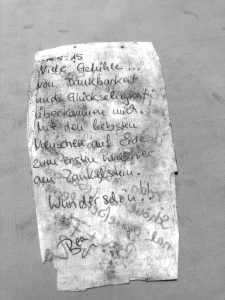 Viele Gefühle...
von Dankbarkeit
und Glückseligkeit
überkommen mich.
Mit den liebsten
Menschen auf Erden
zum ersten Mal hier
am Zankalsirn.
Wunderschön!